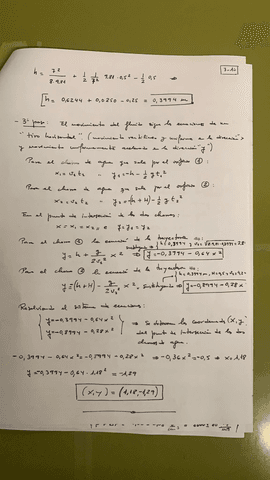 3-10
h = 7² / 8·9,81 + 1/2 1/7² 9,81·0,5² - 1/2 0,5 ⇒
h = 0,6244 + 0,0250 - 0,25 = 0,3994 m
- 3º paso: El movimiento del fluido sigue la ecuaciones de un
"tiro horizontal" (movimiento rectilíneo y uniforme en la dirección x
y movimiento uniformemente acelerado en la dirección "y")
Para el chorro de agua que sale por el orificio ①:
x₁ = v₁ t₁ y₁ = -h - 1/2 g t₁²
Para el chorro de agua que sale por el orificio ②:
x₂ = v₂ t₂ y₂ = -(h+H) - 1/2 g t₂²
En el punto de intersección de los dos chorros:
x = x₁ = x₂ e y = y₁ = y₂
Para el chorro ① la ecuación de la trayectoria es:
x² ⇒ y = -0,3994 - 0,64 x²
Para el chorro ② la ecuación de la trayectoria es:
x². Sustituyendo ⇒ y = -0,8994 - 0,28 x²
Resolviendo el sistema de ecuaciones:
y = -0,3994 - 0,64 x²
y = -0,8994 - 0,28 x²
⇒ Se obtienen las coordenadas (x, y)
del punto de intersección de los dos
chorros de agua.
-0,3994 - 0,64 x² = -0,8994 - 0,28 x² ⇒ -0,36 x² = -0,5 ⇒ x = 1,18
y = -0,3994 - 0,64 · 1,18² = -1,29
(x, y) = (1,18, -1,29)